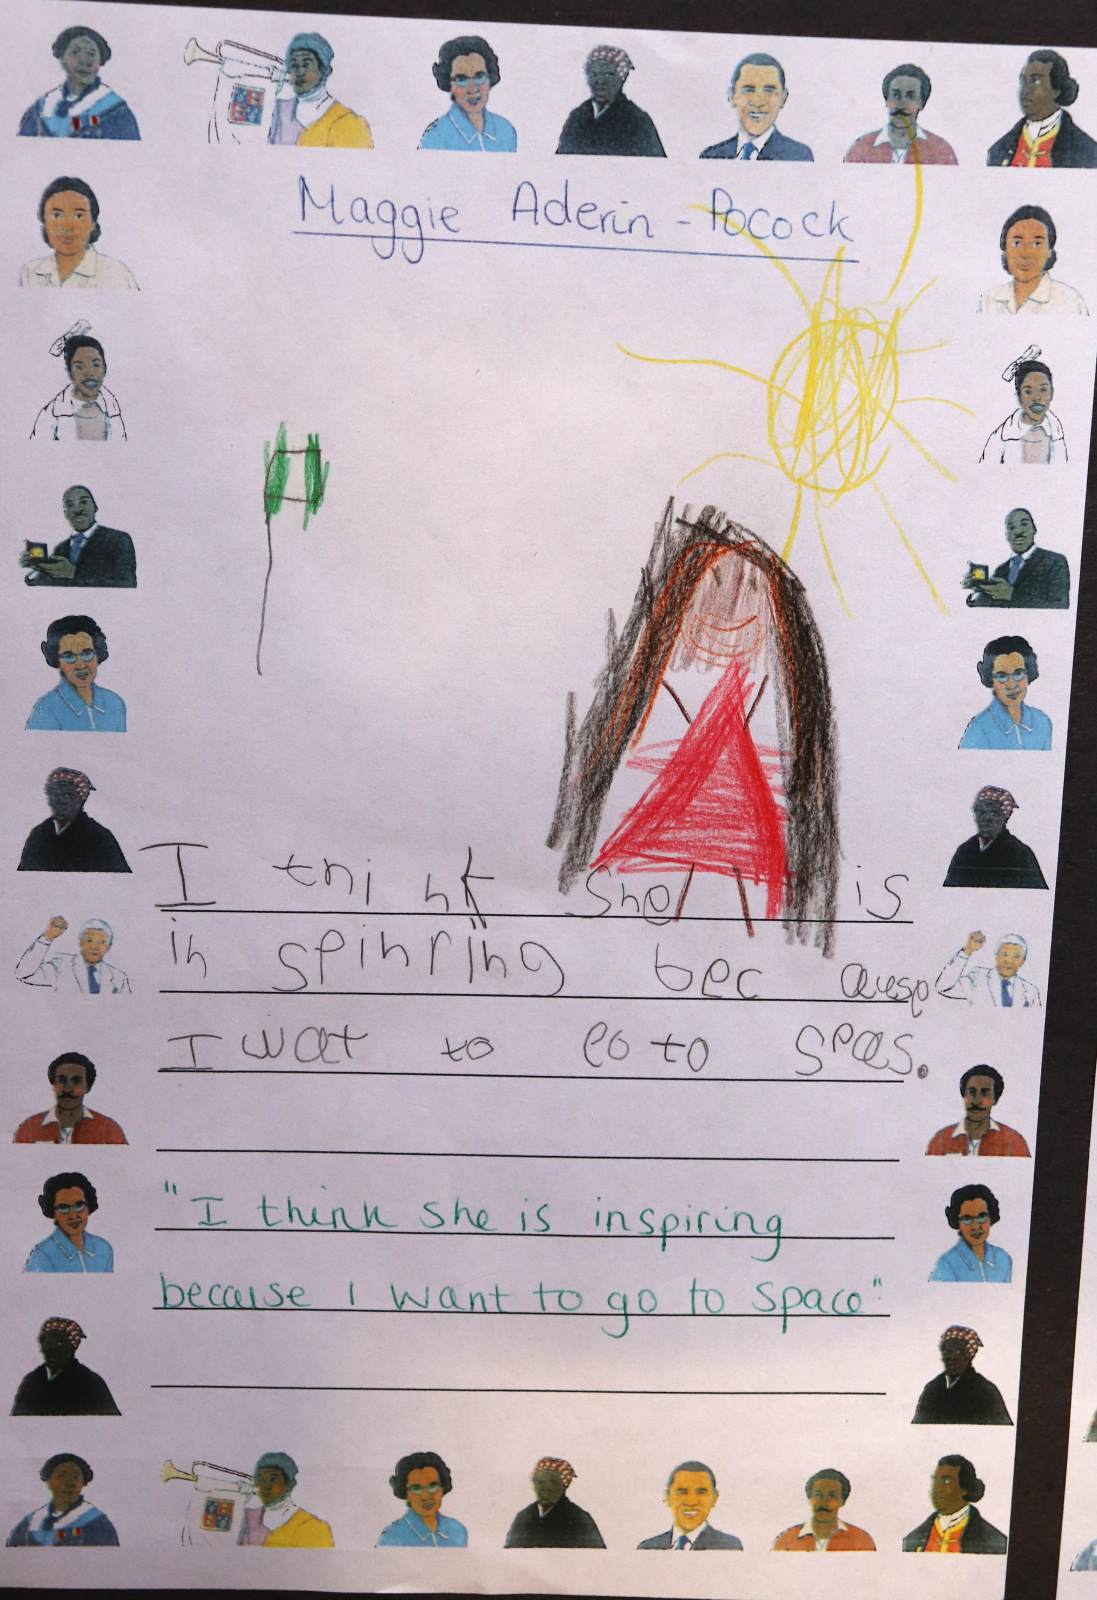 Maggie Aderin-Pocock
I think she is
in spinring because
I wat to go to spas.
"I think she is inspiring
because I want to go to space"